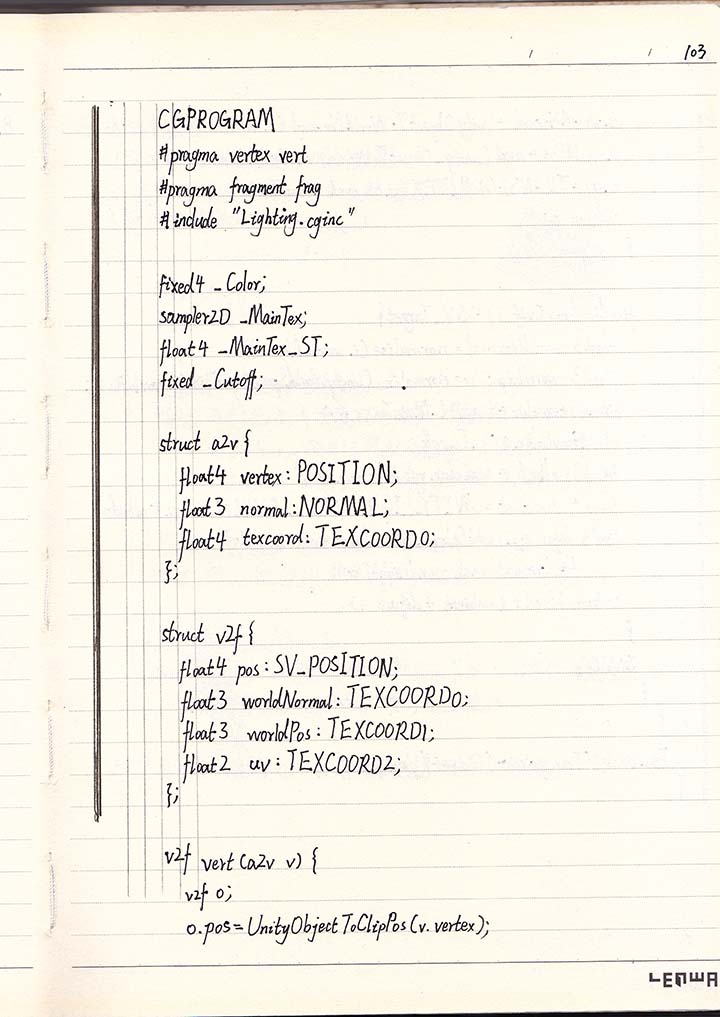 103
CGPROGRAM
#pragma vertex vert
#pragma fragment frag
#include "Lighting.cginc"
fixed4 _Color;
sampler2D _MainTex;
float4 _MainTex_ST;
fixed _Cutoff;
struct a2v {
float4 vertex: POSITION;
float3 normal: NORMAL;
float4 texcoord: TEXCOORD0;
};
struct v2f {
float4 pos: SV_POSITION;
float3 worldNormal: TEXCOORD0;
float3 worldPos: TEXCOORD1;
float2 uv: TEXCOORD2;
};
v2f vert(a2v v) {
v2f o;
o.pos=UnityObjectToClipPos(v.vertex);